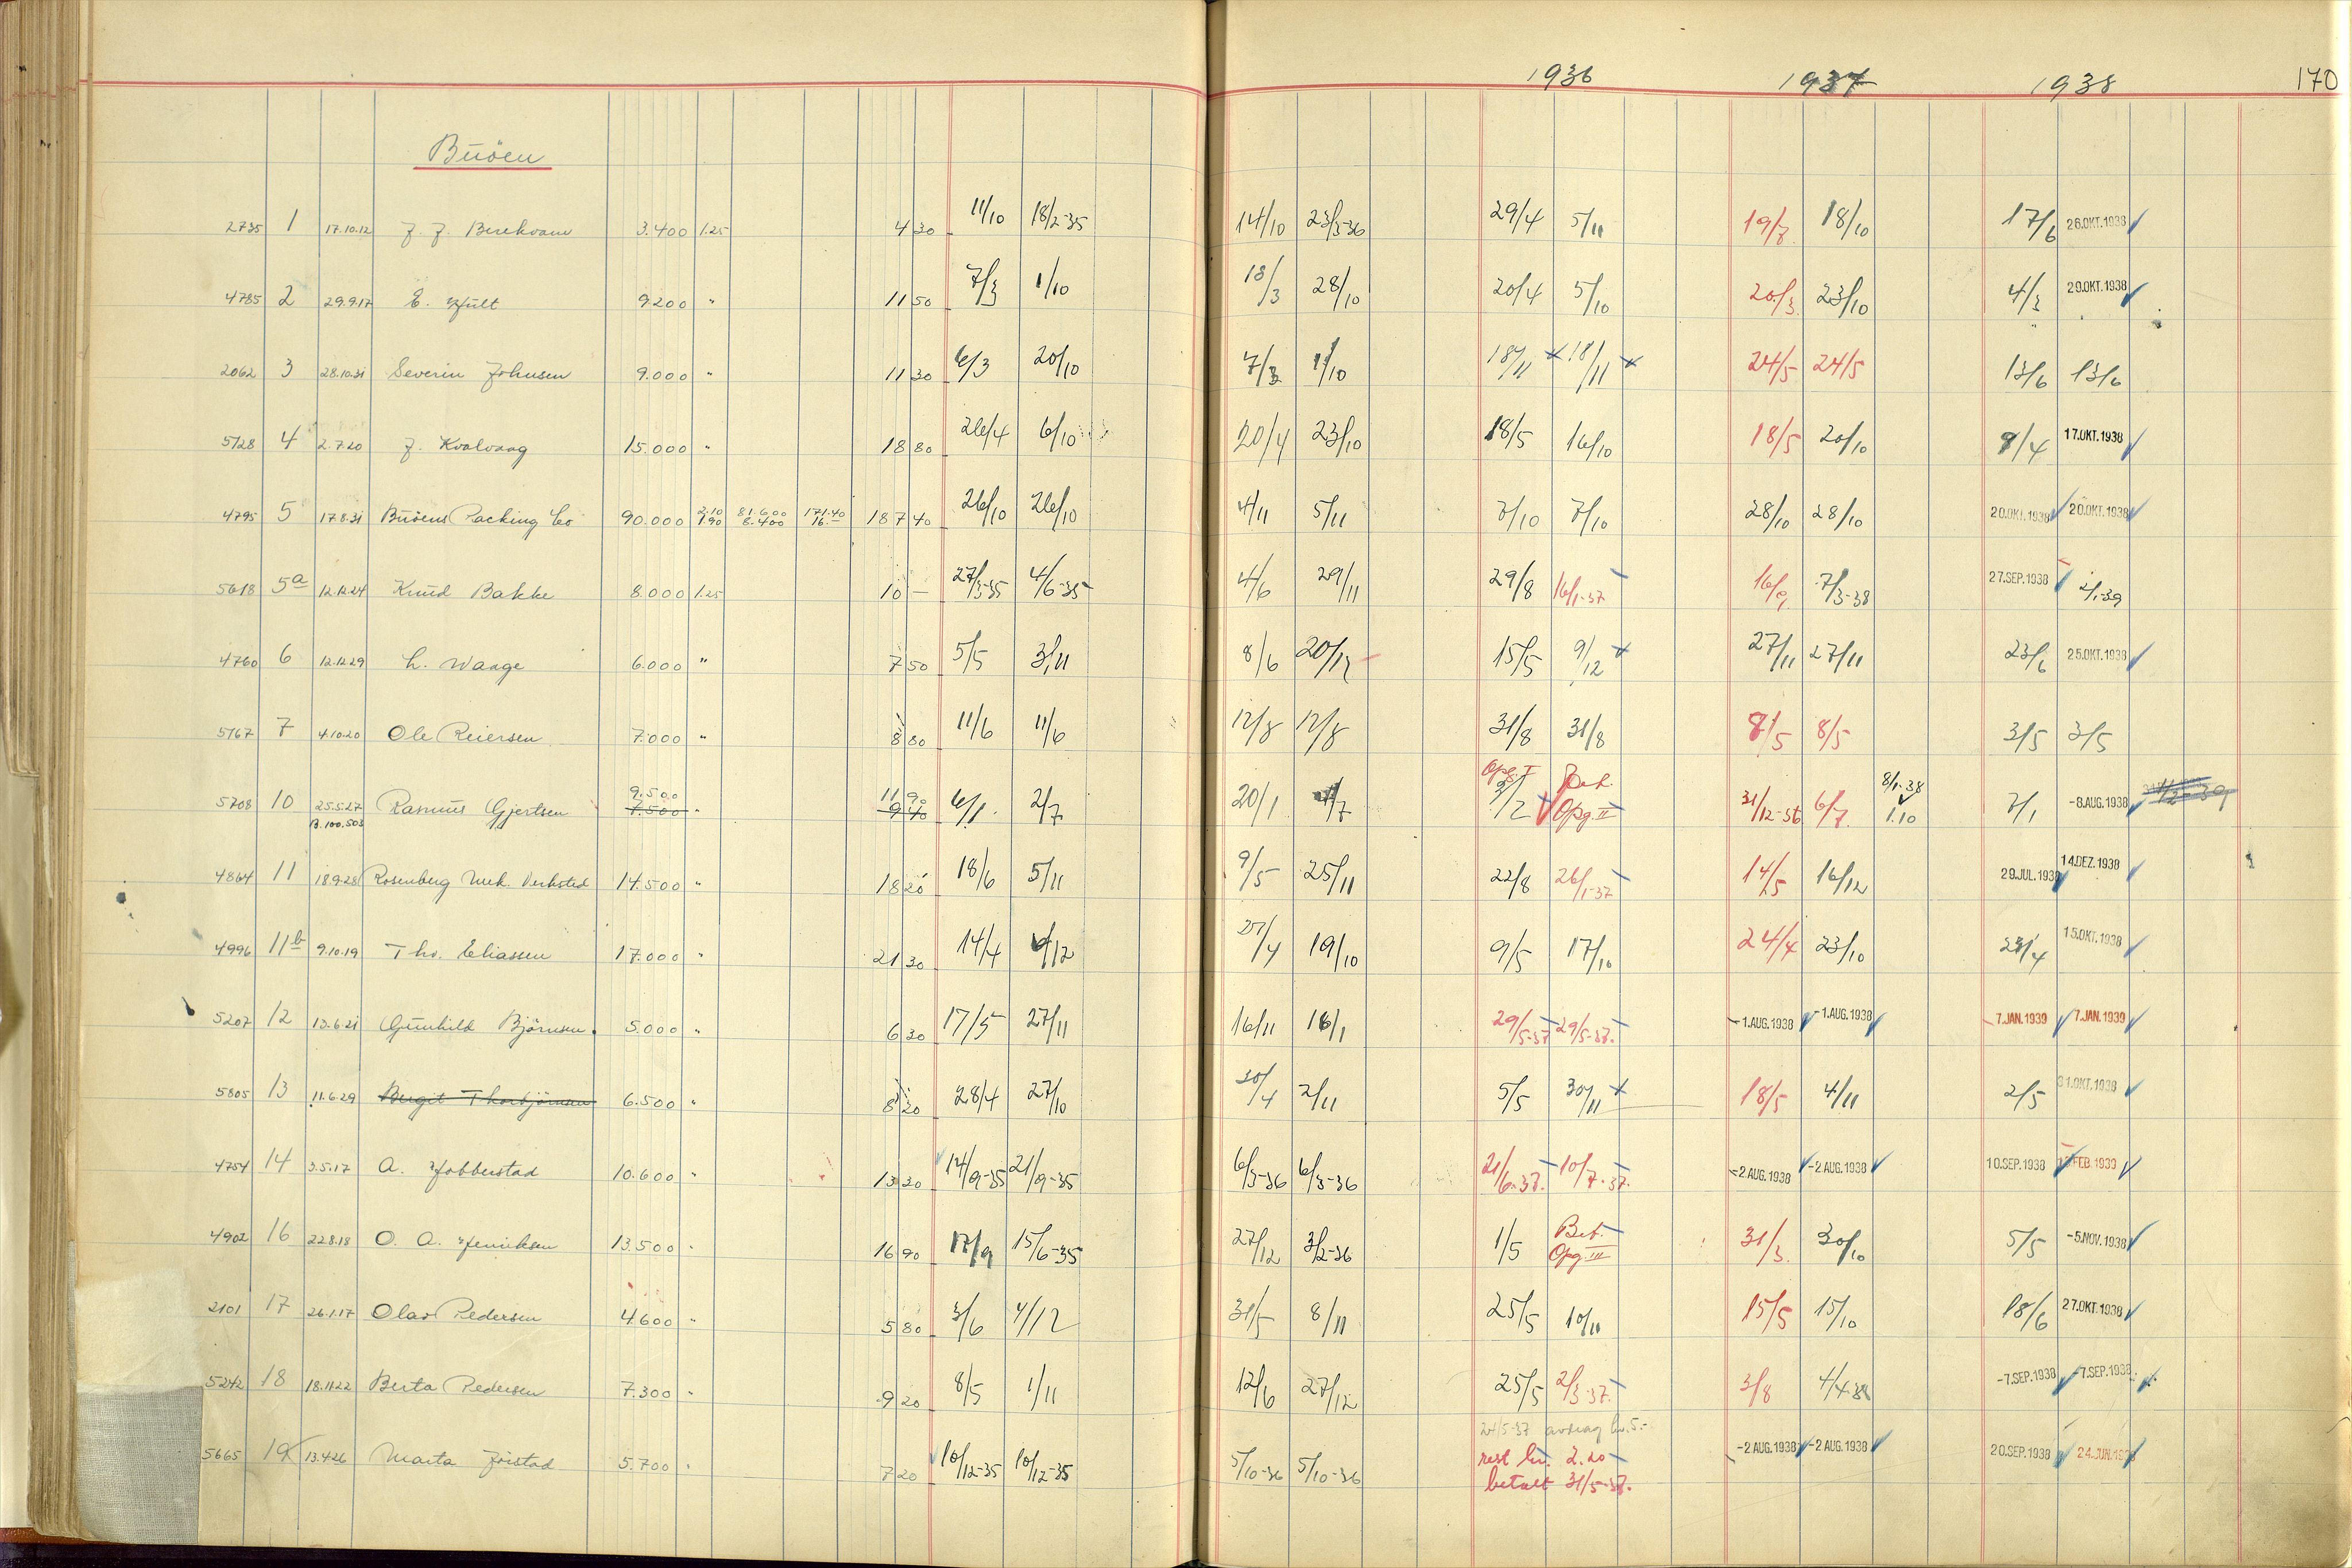 1936 1937 1938 170
Buöen
2735 1 17.10.12 3.400 1.25 4 30 11/10 18/2-35 14/10 23/3-36 29/4 5/11 19/7 18/10 17/6 26.OKT.1938
4785 2 29.9.17 E. Hult 9.200 " 11 50 7/3 1/10 18/3 28/10 20/4 5/10 20/3 23/10 4/3 29.OKT.1938
2062 3 28.10.31 Severin Johnsen 9.000 " 11 30 6/3 20/10 7/3 1/10 18/11 18/11 24/5 24/5 13/6 13/6
5128 4 2.7.20 J. Kvalvaag 15.000 " 18 80 26/4 6/10 20/4 23/10 18/5 16/10 18/5 20/10 8/4 17.OKT.1938
4795 5 17.8.31 Buöens Packing Co 90.000 2.10 1.90 81.600 8.400 171.40 16.- 187 40 26/10 26/10 4/11 5/11 7/10 7/10 28/10 28/10 20.OKT.1938 20.OKT.1938
5618 5a 12.12.24 Knud Bakke 8.000 1.25 10 - 27/3-35 4/6-35 4/6 29/11 29/8 16/1-37 16/9 7/3-38 27.SEP.1938 2/1-39
4760 6 12.12.29 L. Waage 6.000 " 7 50 5/5 3/11 8/6 20/12 15/5 9/12 27/11 27/11 23/6 25.OKT.1938
5167 7 4.10.20 Ole Reiersen 7.000 " 8 80 11/6 11/6 12/8 12/8 31/8 31/8 8/5 8/5 3/5 3/5
5708 10 25.5.27 B.100.503 Rasmus Gjertsen 9.500 7.500 " 11 90 9 40 6/1 2/7 20/1 4/7 Opg. I 3/2 Bet. Opg. II 31/12-36 6/7 8/1-38 1.10 7/1 -8.AUG.1938
4864 11 18.9.28 Rosenberg Mek. Verksted 14.500 " 18 20 18/6 5/11 9/5 25/11 22/8 26/1-37 14/5 16/12 29.JUL.1938 14.DEZ.1938
4996 11b 9.10.19 Tho. Eliassen 17.000 " 21 30 14/4 4/12 27/4 19/10 9/5 17/10 24/4 23/10 23/4 15.OKT.1938
5207 12 13.6.21 Gunhild Björnsen 5.000 " 6 30 17/5 27/11 16/11 16/1 29/5-37 29/5-37. -1.AUG.1938 -1.AUG.1938 -7.JAN.1939 7.JAN.1939
5805 13 11.6.29 Birgit Thorbjörnsen 6.500 " 8 20 28/4 27/10 30/4 2/11 5/5 30/11 18/5 4/11 2/5 31.OKT.1938
4754 14 3.5.17 A. Jobberstad 10.600 " 13 20 14/9-35 21/9-35 6/3-36 6/3-36 21/6-37. 10/7-37. -2.AUG.1938 -2.AUG.1938 10.SEP.1938 FEB.1939
4902 16 22.8.18 O. A. Henriksen 13.500 " 16 90 17/9 15/6-35 27/12 3/2-36 1/5 Bet. Opg. III 31/3. 30/10 5/5 -5.NOV.1938
2101 17 26.1.17 Olav Pedersen 4.600 " 5 80 3/6 4/12 31/5 8/11 25/5 10/11 15/5 15/10 18/6 27.OKT.1938
5242 18 18.11.22 Berta Pedersen 7.300 " 9 20 8/5 1/11 12/6 27/12 25/5 2/3-37. 3/8 4/4-38 -7.SEP.1938 -7.SEP.1938
24/5-37 avdrag kr. 5.-
5665 19 13.4.26 Marta Jöstad 5.700 " 7 20 10/12-35 10/12-35 5/10-36 5/10-36 rest kr. 2.20 -2.AUG.1938 -2.AUG.1938 20.SEP.1938 24.JUN.1939
betalt 31/5-37.